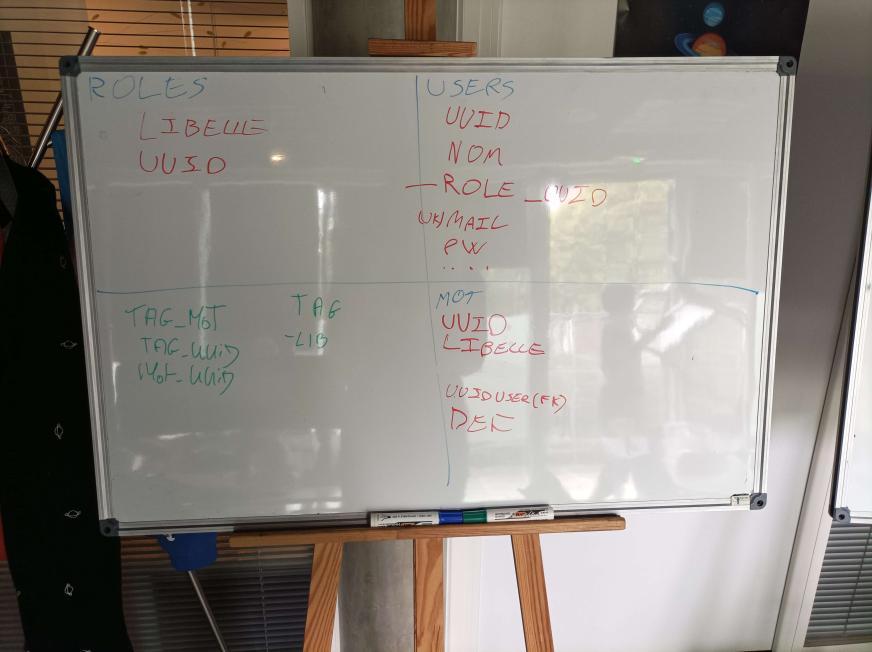 ROLES
LIBELLE
UUID
USERS
UUID
NOM
—ROLE_UUID
MAIL
PW
....
TAG_MOT
TAG_UUID
MOT_UUID
TAG
-LIB
MOT
UUID
LIBELLE
UUIDUSER(FK)
DEF